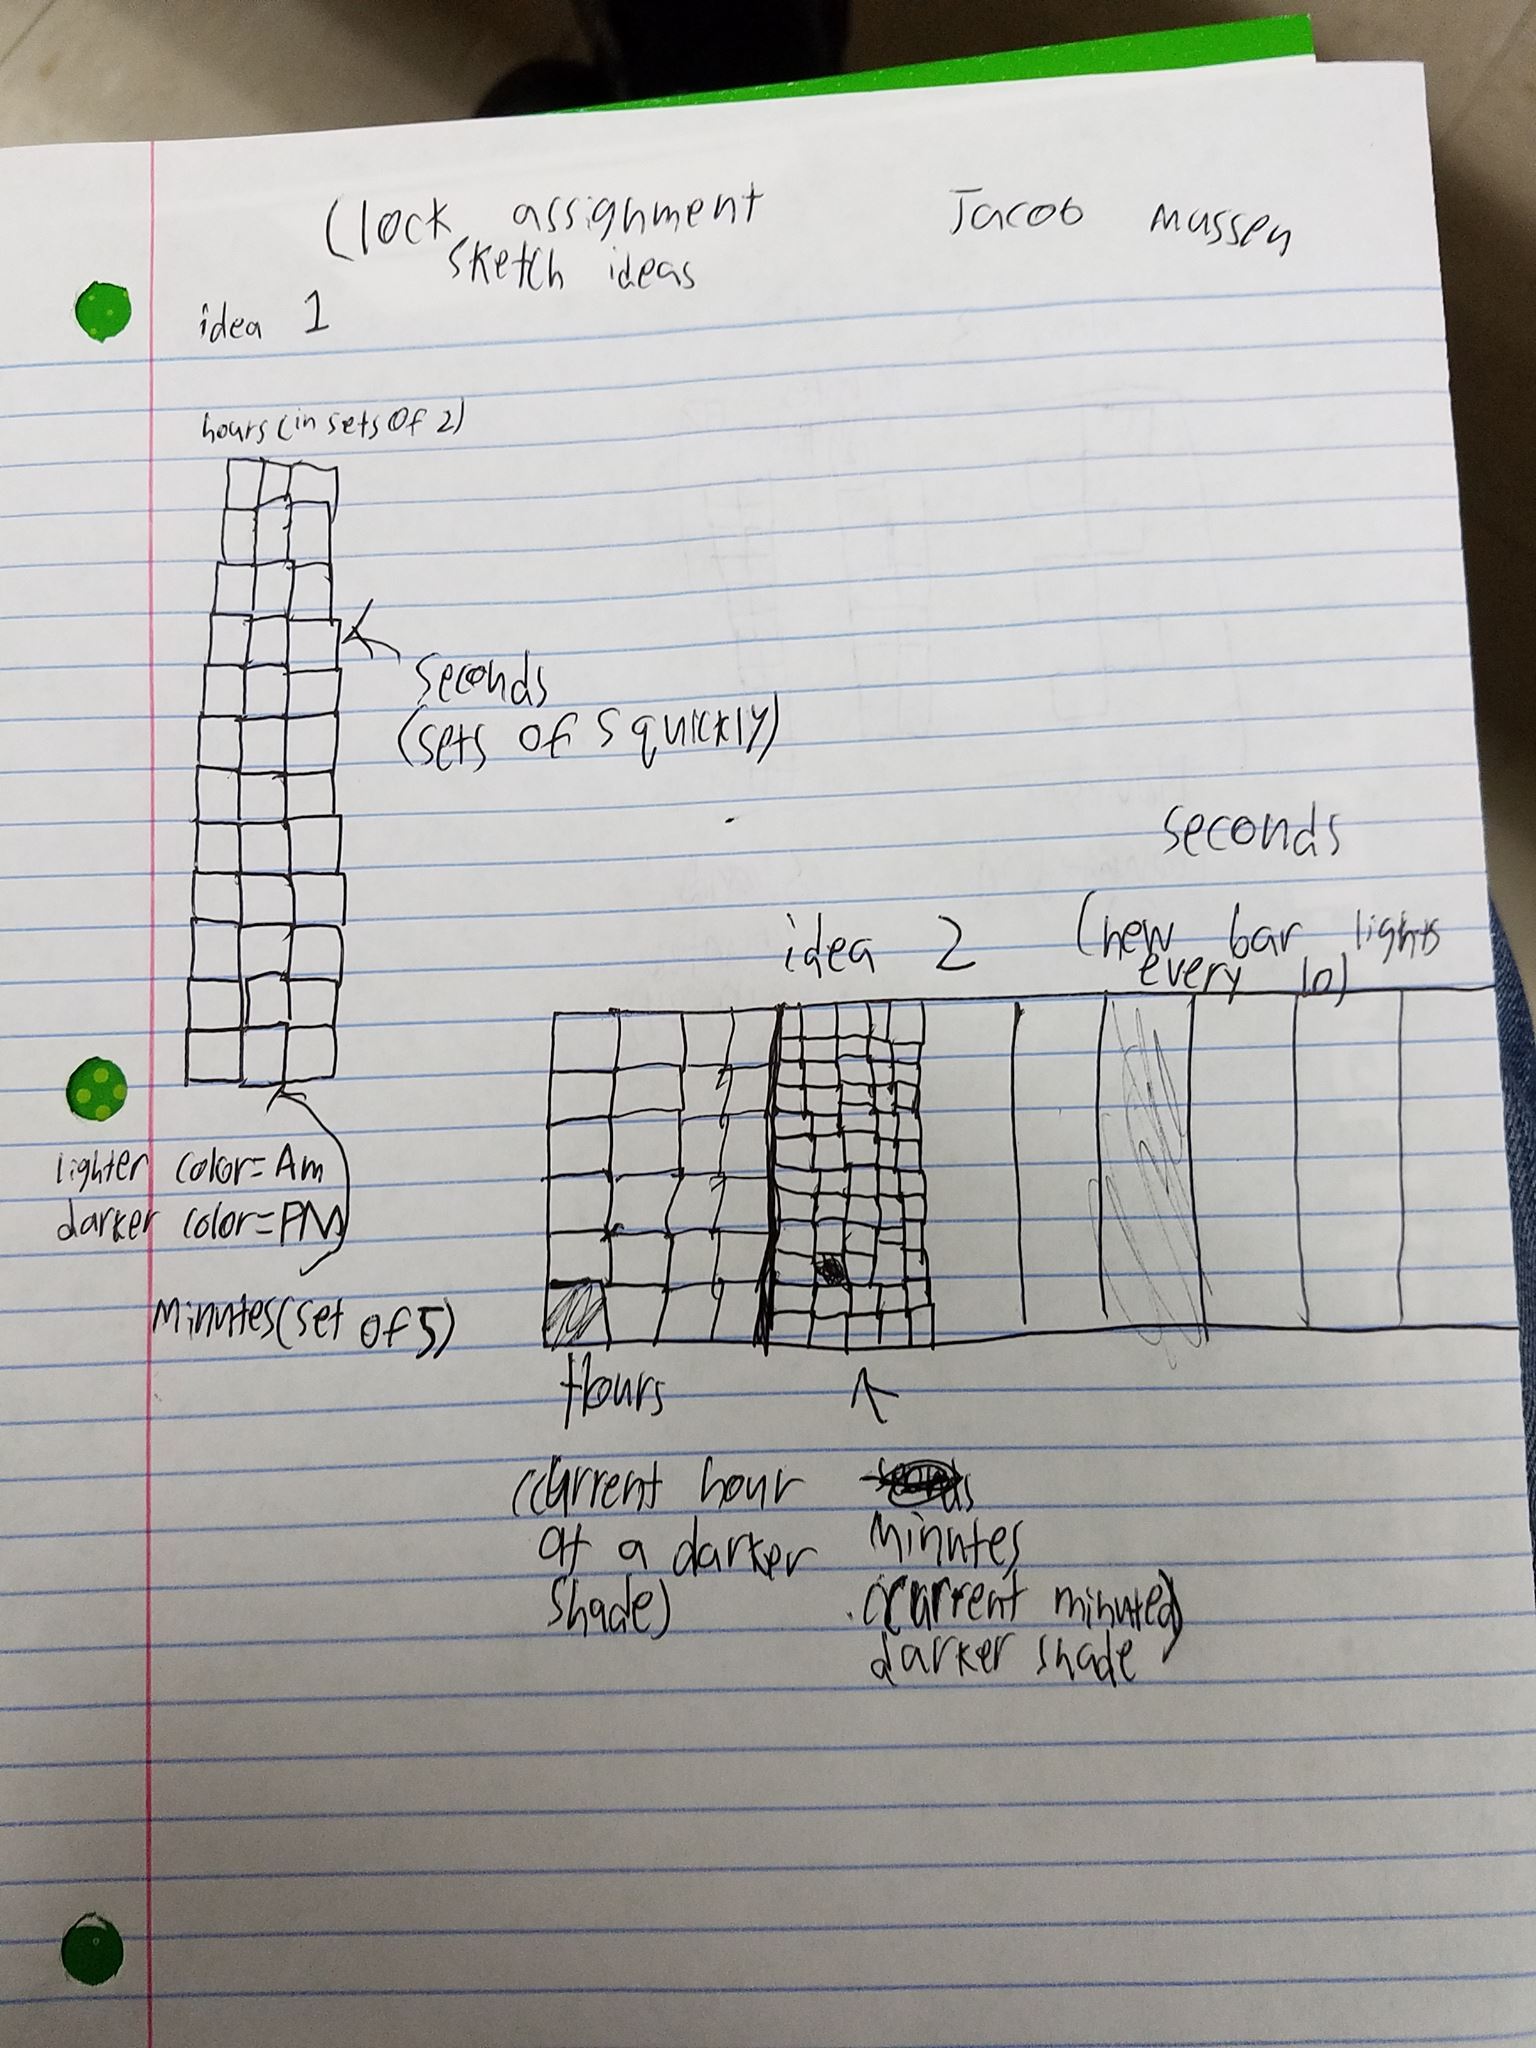 Clock assignment
sketch ideas
Jacob Mussen
idea 1
hours (in sets of 2)
seconds
(sets of 5 quickly)
lighter color=Am
darker color=PM
Minutes(set of 5)
idea 2
seconds
(new bar lights
every 10)
Hours
(current hour
at a darker
shade)
minutes
(current minute)
darker shade